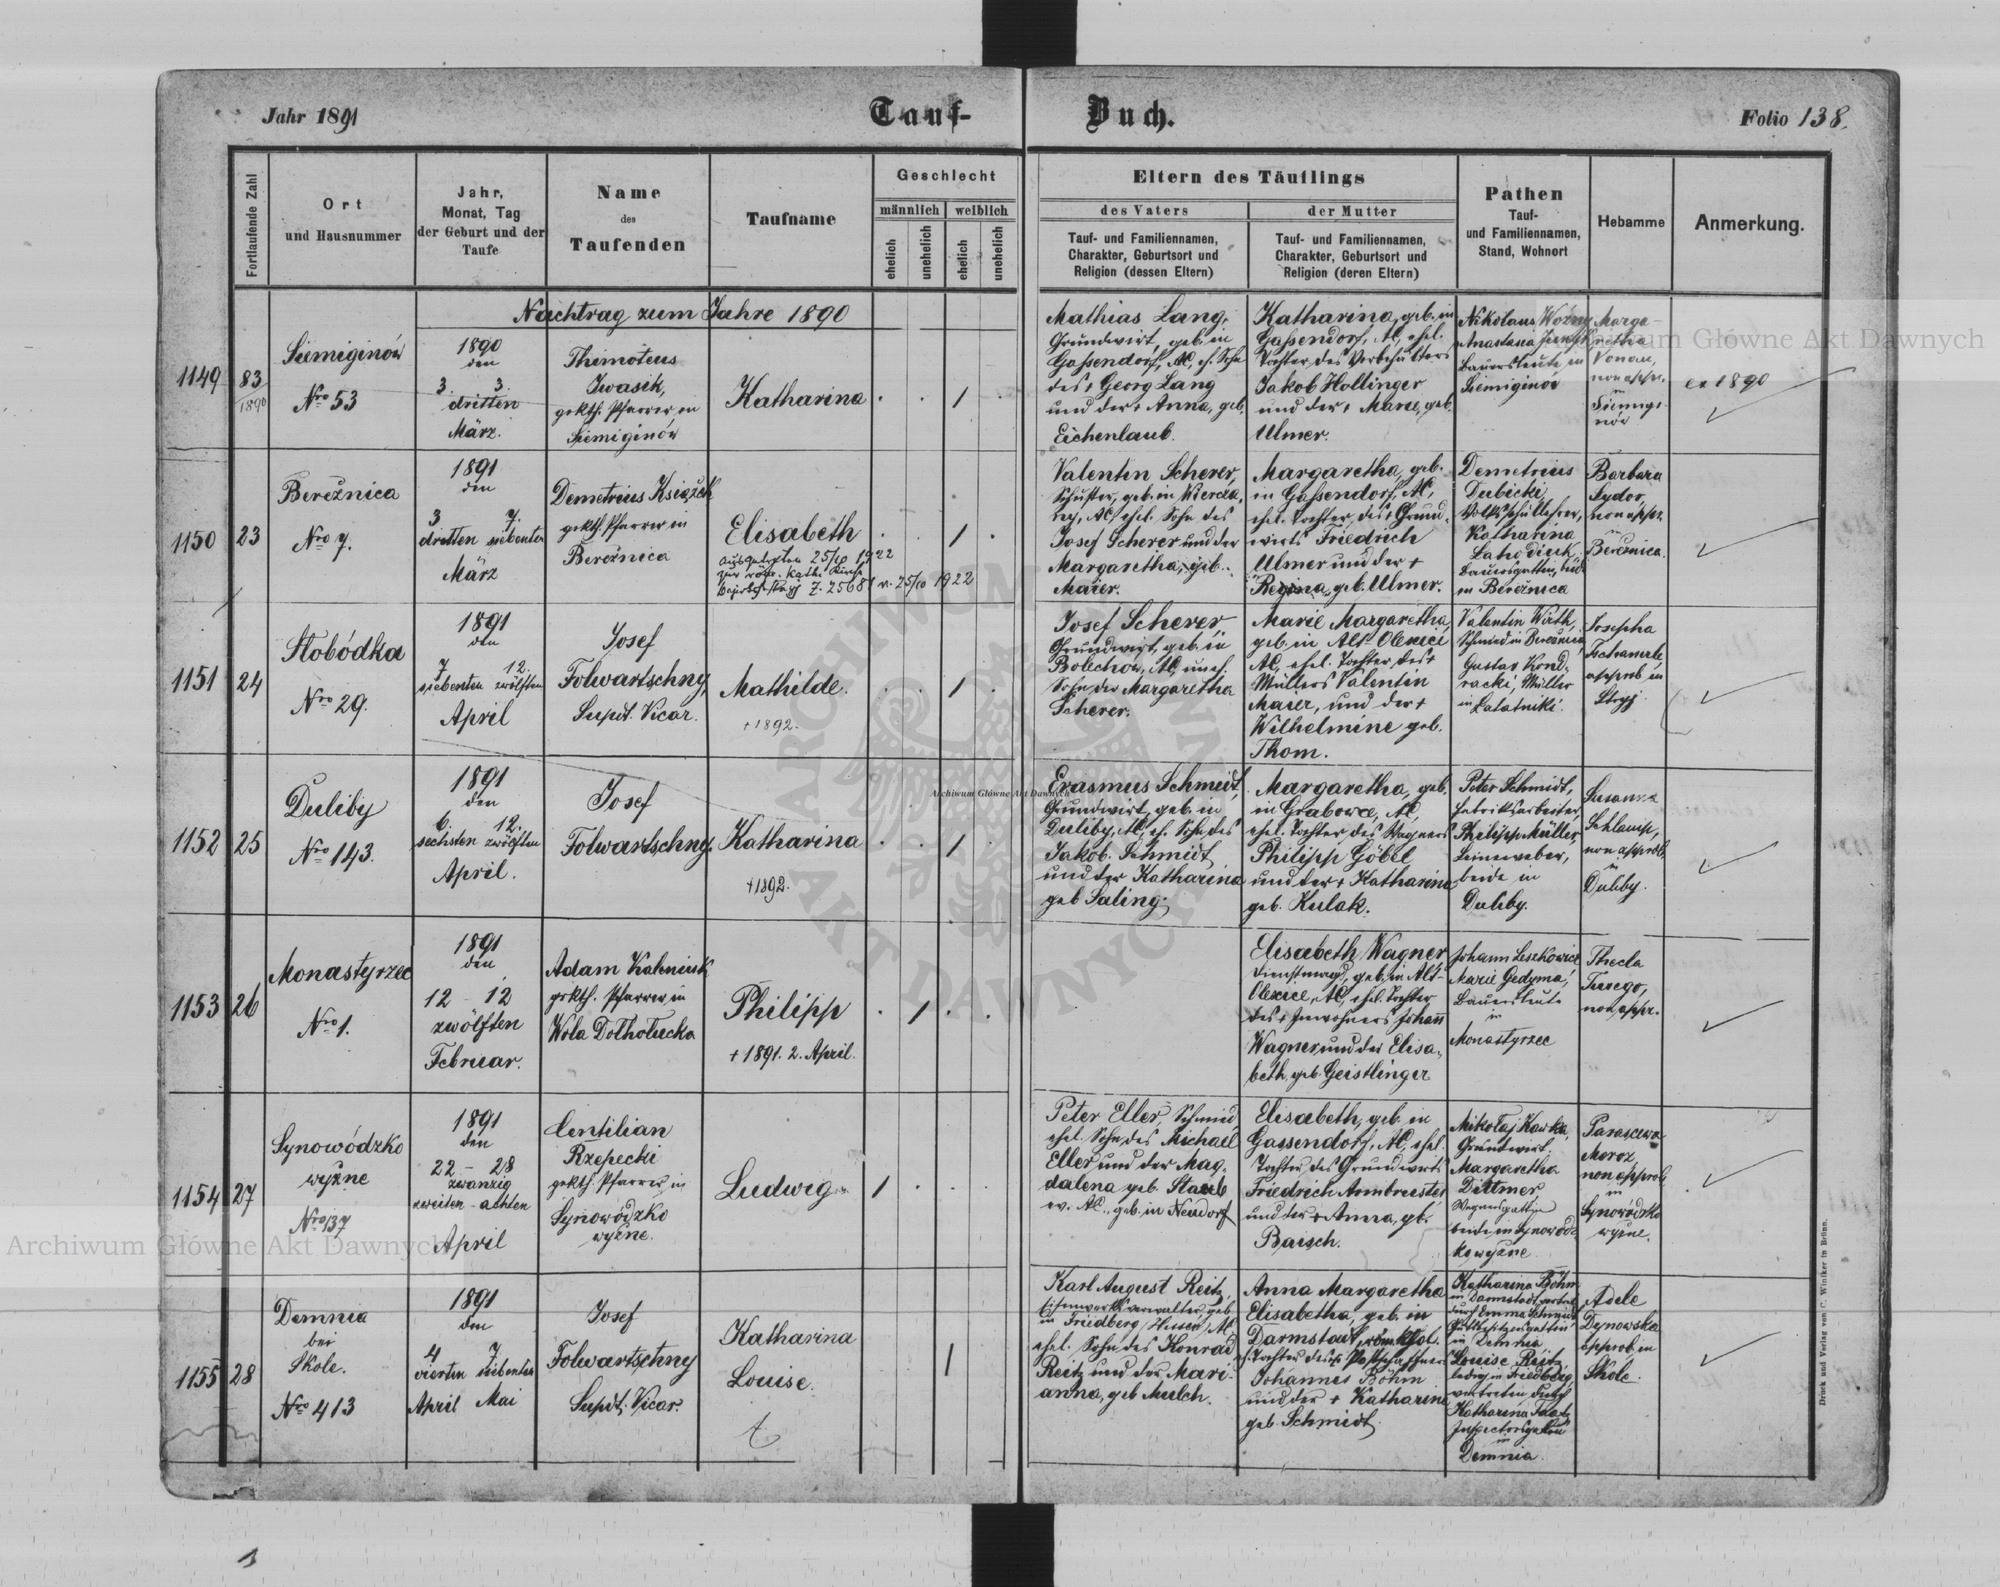 Jahr 1891
Tauf-
Buch.
Folio 138.
Fortlaufende Zahl
Ort
und Hausnummer
Jahr,
Monat, Tag
der Geburt und der
Taufe
Name
des
Taufenden
Taufname
Geschlecht
männlich
weiblich
ehelich
unehelich
ehelich
unehelich
Eltern des Täuflings
des Vaters
der Mutter
Tauf- und Familiennamen,
Charakter, Geburtsort und
Religion (dessen Eltern)
Tauf- und Familiennamen,
Charakter, Geburtsort und
Religion (deren Eltern)
Pathen
Tauf-
und Familiennamen,
Stand, Wohnort
Hebamme
Anmerkung.
Nachtrag zum Jahre 1890
1149
83
1890
Siemiginów
Nro 53
1890
den
3. 3.
dritten
März.
Thimoteus
Iwasik,
gr. kth. Pfarrer in
Siemiginów
Katharina
Mathias Lang,
Grundwirt, geb. in
Gassendorf, AC, eh. Sohn
des + Georg Lang
und der + Anna, geb.
Eichenlaub.
Katharina, geb. in
Gassendorf, AC, ehel.
Tochter des Vorbehälters
Jakob Hollinger
und der + Marie, geb.
Ulmer.
Nikolaus Woźny
Anastasia
Bauersleute in
Siemiginów
Marga-
retha
Vonau,
non appr.
in
Siemigi-
nów
ex 1890
1150
23
Bereźnica
Nro 7.
1891
den
3 7.
dritten siebenten
März
Demetrius Książek
gr. kth. Pfarrer in
Bereźnica
Elisabeth
ausgetreten 25/10 1922
zur röm. kath. Kirche
Z. 25681 v. 25/10 1922
Valentin Scherer,
Schuster, geb. in Wiercza-
ny, AC, ehel. Sohn des
Josef Scherer und der
Margaretha, geb.
Maier.
Margaretha, geb.
in Gassendorf, AC,
ehel. Tochter des + Grund-
wirts Friedrich
Ulmer und der +
Regina, geb. Ulmer.
Demetrius
Dubicki,
Volksschullehrer,
Katharina
Bauersgattin, beide
in Bereźnica
Barbara
Sydor,
non appr.
in
Bereźnica.
1151
24
Słobódka
Nro 29.
1891
den
7 12.
siebenten zwölften
April
Josef
Folwartschny,
Supdt. Vicar.
Mathilde.
+ 1892.
Josef Scherer
Grundwirt, geb. in
Bolechów, AC, uneh.
Sohn der Margaretha
Scherer.
Marie Margaretha,
geb. in Alt Olexici
AC, ehel. Tochter des +
Müllers Valentin
Maier, und der +
Wilhelmine geb.
Thom.
Valentin Wirth,
Schmied in Bereźnica
Gustav Kond-
racki, Müller
in Łatatniki.
Josepha
approb. in
Stryj.
1152
25
Duliby
Nro 143.
1891
den
6. 12.
sechsten zwölften
April.
Josef
Folwartschny.
Katharina
+ 1892.
Erasmus Schmidt,
Grundwirt, geb. in
Duliby, AC, eh. Sohn des
Jakob Schmidt
und der Katharina
geb. Saling.
Margaretha, geb.
in Grabowce, AC,
ehel. Tochter des Wagners
Philipp Göbel
und der + Katharina
geb. Kulak.
Peter Schmidt,
Fabriksarbeiter,
Philipp Müller,
Leineweber,
beide in
Duliby.
Susanna
Schlamp,
non approb.
in
Duliby.
1153
26
Monastyrzec
Nro 1.
1891
den
12 - 12
zwölften
Februar.
Adam Kaleniuk
gr. kth. Pfarrer in
Wola Dołhołucka
Philipp
+ 1891. 2. April.
Elisabeth Wagner
Dienstmagd, geb. in Alt-
Olexice, AC, ehel. Tochter
des + Inwohners Johann
Wagner und der Elisa-
beth, geb. Geistlinger
Johann Leszkowicz
Marie Gedyma,
Bauersleute
in
Monastyrzec
Thecla
non appr.
1154
27
Synowódzko
wyżne
Nro 137
1891
den
22 - 28
zwanzig
zweiten - achten
April
Centilian
Rzepecki
gr. kth. Pfarrer in
Synowódzko
wyżne.
Ludwig
Peter Eller, Schmied,
ehel. Sohn des Michael
Eller und der Mag-
dalena geb. Staub
ev. AC., geb. in Neudorf
Elisabeth, geb. in
Gassendorf, AC, ehel.
Tochter des Grundwirts
Friedrich Armbruster
und der + Anna, gb.
Baisch.
Mikołaj Kawka,
Grundwirt.
Margaretha
Dittmer,
Wagnersgattin
beide in Synowódz-
ko wyżne.
Parascewa
Moroz
non approb.
in
Synowódzko
wyżne.
1155
28
Demnia
bei
Skole.
Nro 413
1891
den
4 7
vierten siebenten
April Mai
Josef
Folwartschny
Supdt. Vicar.
Katharina
Louise.
Karl August Reitz,
Eisenwerksverwalter, geb.
in Friedberg, Hessen, AC
ehel. Sohn des Konrad
Reitz und der Mari-
anna, geb. Mulch.
Anna Margaretha
Elisabetha, geb. in
Darmstadt, röm. kthol.
eh. Tochter des + Postschaffners
Johannes Böhm
und der + Katharina
geb. Schmidt.
Katharina Böhm
in Darmstadt, vertret.
durch Emma Schmidt
Gutbesitzersgattin
in Demnia
Louise Reitz,
ledig in Friedberg,
vertreten durch
Katharina
Inspectorsgattin
in
Demnia.
Adele
Dynowska
approb. in
Skole.
Druck und Verlag von C. Winiker in Brünn.
Archiwum Główne Akt Dawnych
Archiwum Główne Akt Dawnych
Archiwum Główne Akt Dawnych
ARCHIWUM GŁÓWNE AKT DAWNYCH